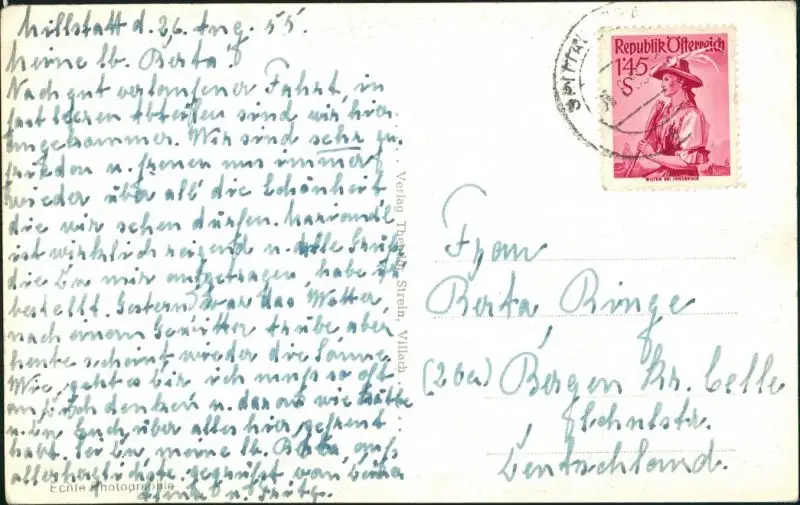 Millstatt d. 26. Aug. 55.
Meine lb. Berta!
Nach gut verlaufener Fahrt, in
fast leeren Abteilen sind wir hier
angekommen. Wir sind sehr zu-
frieden u. freuen uns immer
wieder über all die Schönheit,
die wir sehen dürfen. Mariandl
ist wirklich reizend u. alle Grüße
die Du mir aufgetragen, habe ich
bestellt. Gestern war das Wetter,
nach einem Gewitter trübe aber
heute scheint wieder die Sonne.
Wie geht es Dir, ich muß so oft
an Dich denken u. daran wie
u. Du Euch über alles hier gefreut
habt. Sei Du, meine lb. Berta, aufs
allerherzlichste gegrüßt von Deiner
u. Fritz.
Echte Photographie
Verlag Theodor Strein, Villach
Republik Österreich
1'45
S
WILTEN BEI INNSBRUCK
Frau
Berta Ringe
Bergen Kr. Celle
Schulstr.
Deutschland.